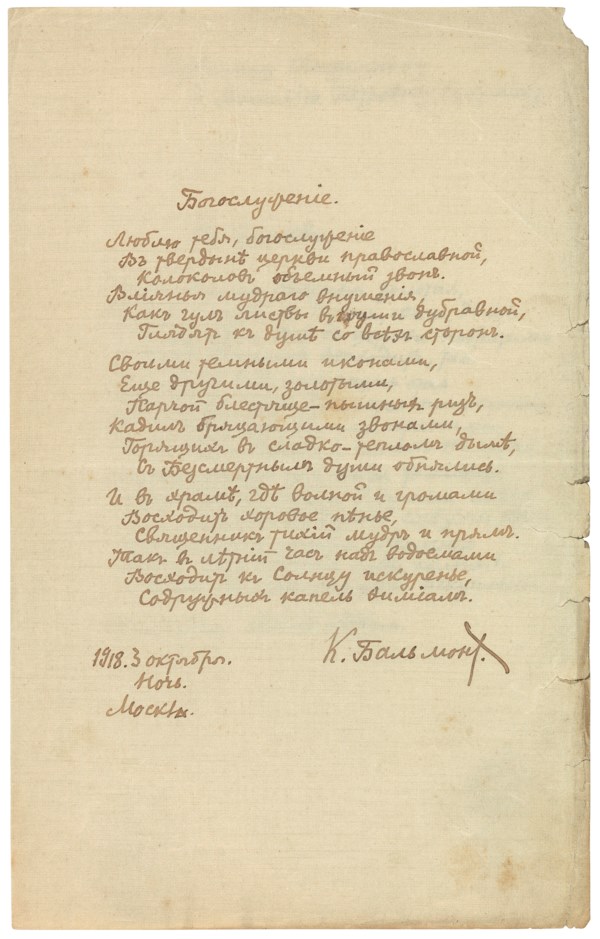 Богослуженіе.
Люблю тебя, богослуженіе
Въ твердынѣ церкви православной,
Колоколовъ объемный звонъ.
Вліянья мудраго внушенія,
Какъ гулъ листвы въ дубравной,
Глядятъ къ душѣ со всѣхъ сторонъ.
Своими темными иконами,
Еще другими, золотыми,
Парчой блестяще-пышныхъ ризъ,
Кадилъ бряцающими звонами,
Горящихъ въ сладко-тепломъ дымѣ,
въ Безсмертнымъ души обнялись.
И въ храмѣ, гдѣ волной и громами
Восходитъ хоровое пѣнье,
Священникъ тихій мудръ и прямъ.
Такъ въ лѣтній часъ надъ водоемами
Восходитъ къ Солнцу искуренье,
Содружныхъ капель ѳиміамъ.
К. Бальмонт.
1918. 3 октября.
Ночь.
Москва.